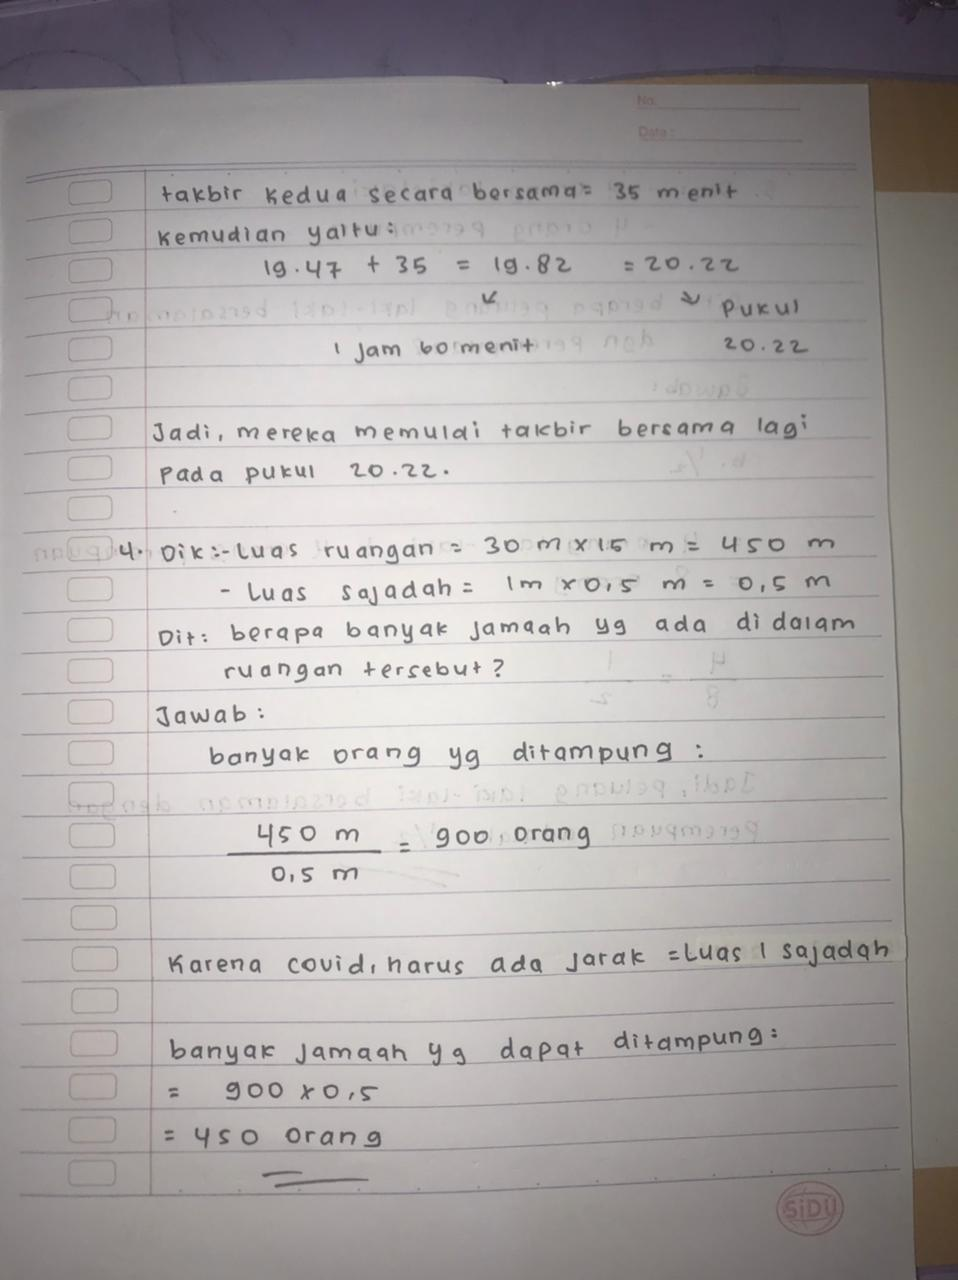 No.
Date :
takbir kedua secara bersama = 35 menit
kemudian yaitu :
19.47 + 35 = 19.82 = 20.22
↙ ↘ pukul
1 jam 60 menit 20.22
Jadi, mereka memulai takbir bersama lagi
pada pukul 20.22.
4. Dik :- Luas ruangan = 30 m x 15 m = 450 m
- Luas sajadah = 1m x 0,5 m = 0,5 m
Dit : berapa banyak jamaah yg ada di dalam
ruangan tersebut ?
Jawab :
banyak orang yg ditampung :
450 m
= 900 orang
0,5 m
Karena covid, harus ada jarak = Luas 1 sajadah
banyak jamaah yg dapat ditampung :
= 900 x 0,5
= 450 orang
SiDU